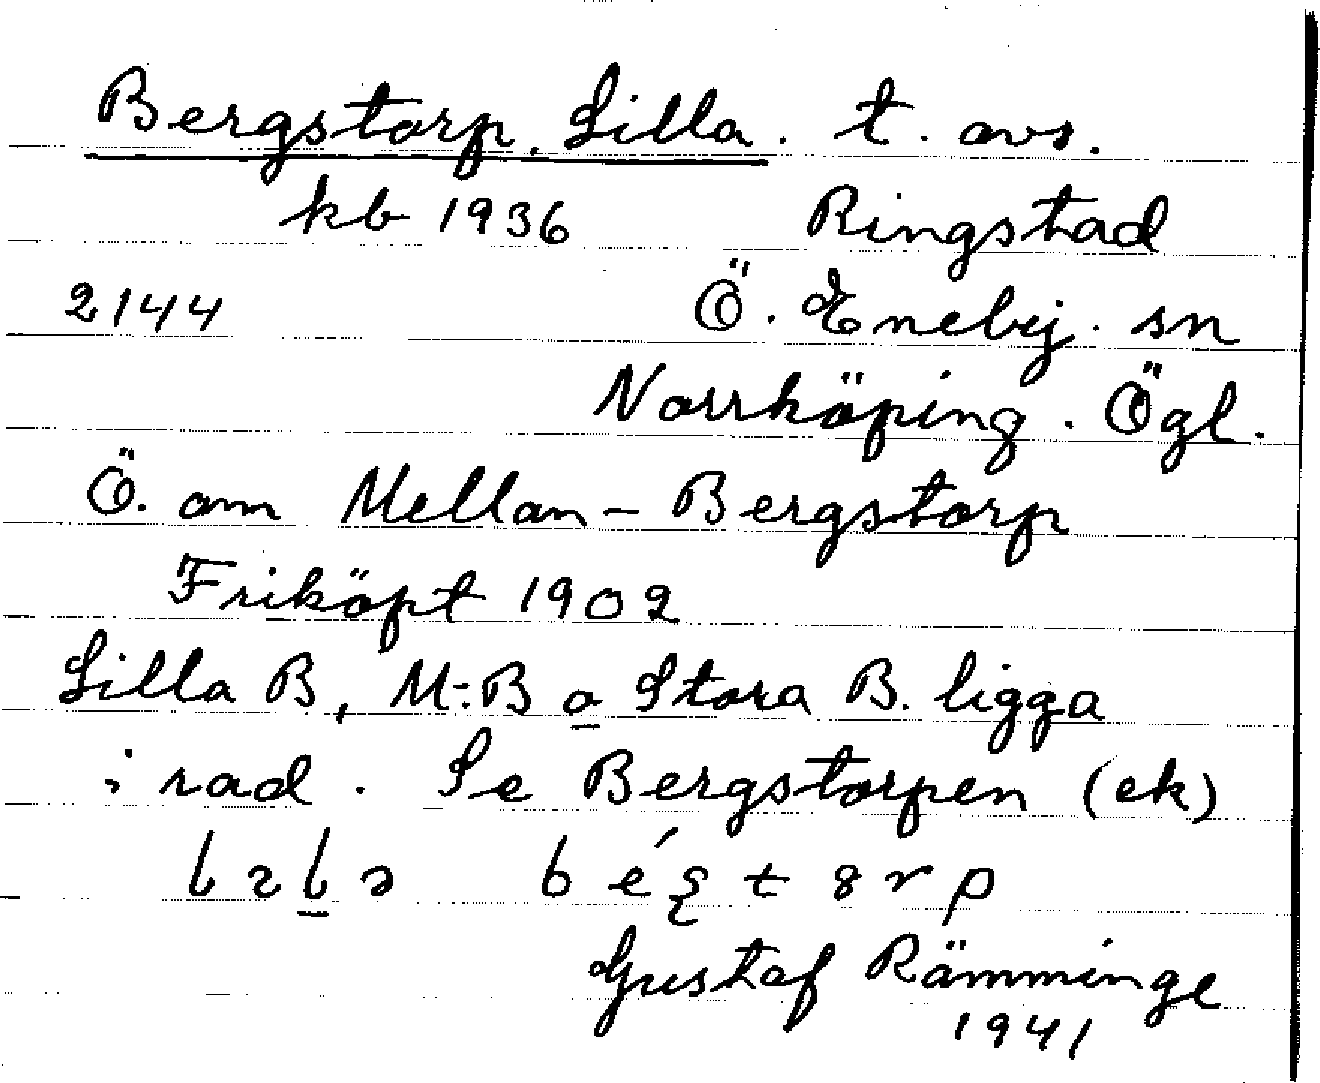 Bergstorp. Lilla. t. avs.
kb 1936 Ringstad
2144 Ö. Eneby. sn
Norrköping. Ögl.
Ö. om Mellan-Bergstorp
Friköpt 1902
Lilla B, M:B o Stora B. ligga
i rad. Se Bergstorpen (ek)
Gustaf Rämminge
1941